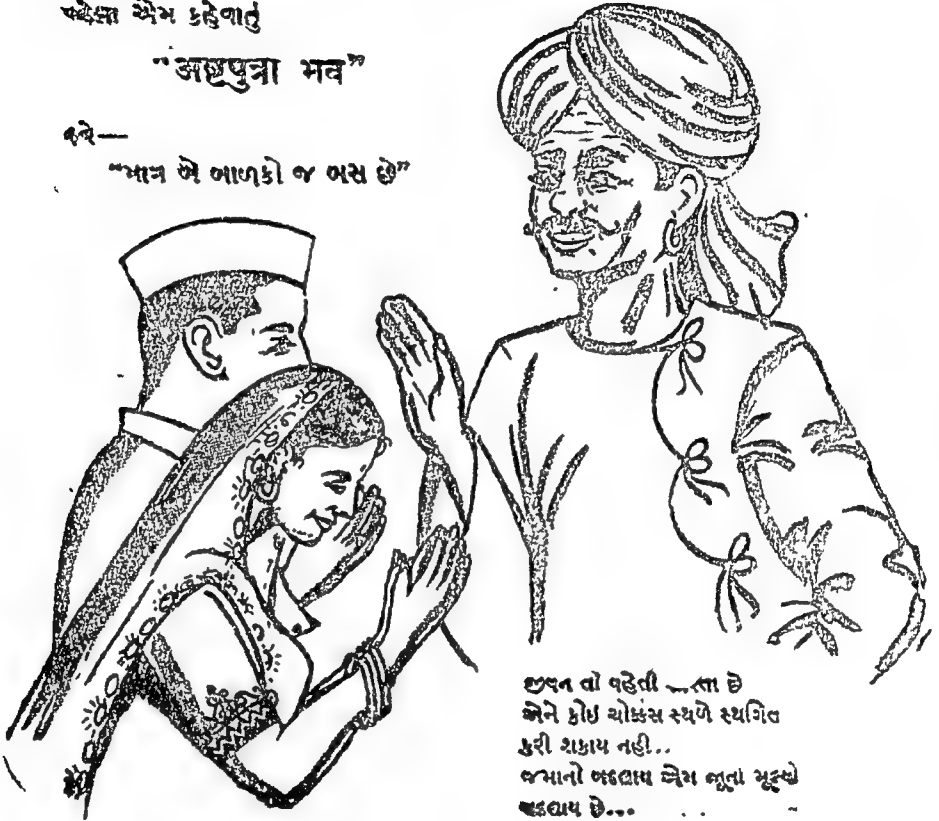 પહેલા એમ કહેવાતું
"અષ્ટપુત્રા ભવ"
હવે—
"માત્ર બે બાળકો જ બસ છે"
જીવન તો વહેતી છે
એને કોઇ ચોક્કસ સ્થળે સ્થગિત
કરી શકાય નહી..
જમાનો બદલાય એમ જૂના મૂલ્યો
બદલાય છે...